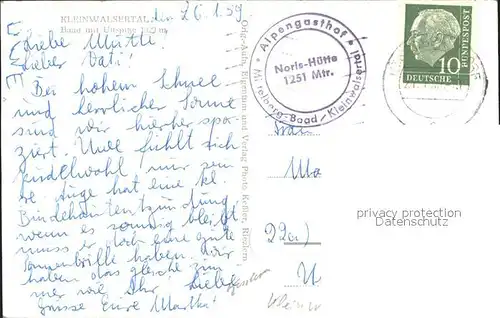 KLEINWALSERTAL
den 26.1.59
Baad mit
Liebe Mutti!
Lieber Vati!
Bei hohem Schnee
und herrlicher Sonne
sind wir hierher spa-
ziert. Uwe fühlt sich
pudelwohl nur sein
re. Auge hat eine kl.
Bindehautentzündung,
wenn es sonnig bleibt
muss er doch eine gute
Sonnenbrille haben. Wir
haben das gleiche Zim-
mer wie Ihr. Liebe
Grüsse Eure Martha!
Orig.-Aufn., Eigentum und Verlag Photo Keßler, Riezlern
Alpengasthof
Noris-Hütte
1251 Mtr.
Mittelberg-Baad / Kleinwalsertal
DEUTSCHE BUNDESPOST
10
privacy protection
Datenschutz